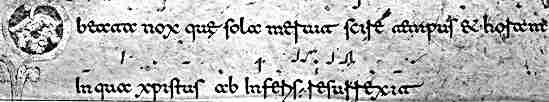 O beata nox quę sola meruit scire tempus & horam
In qua xpistus ab Inferis resurrexit